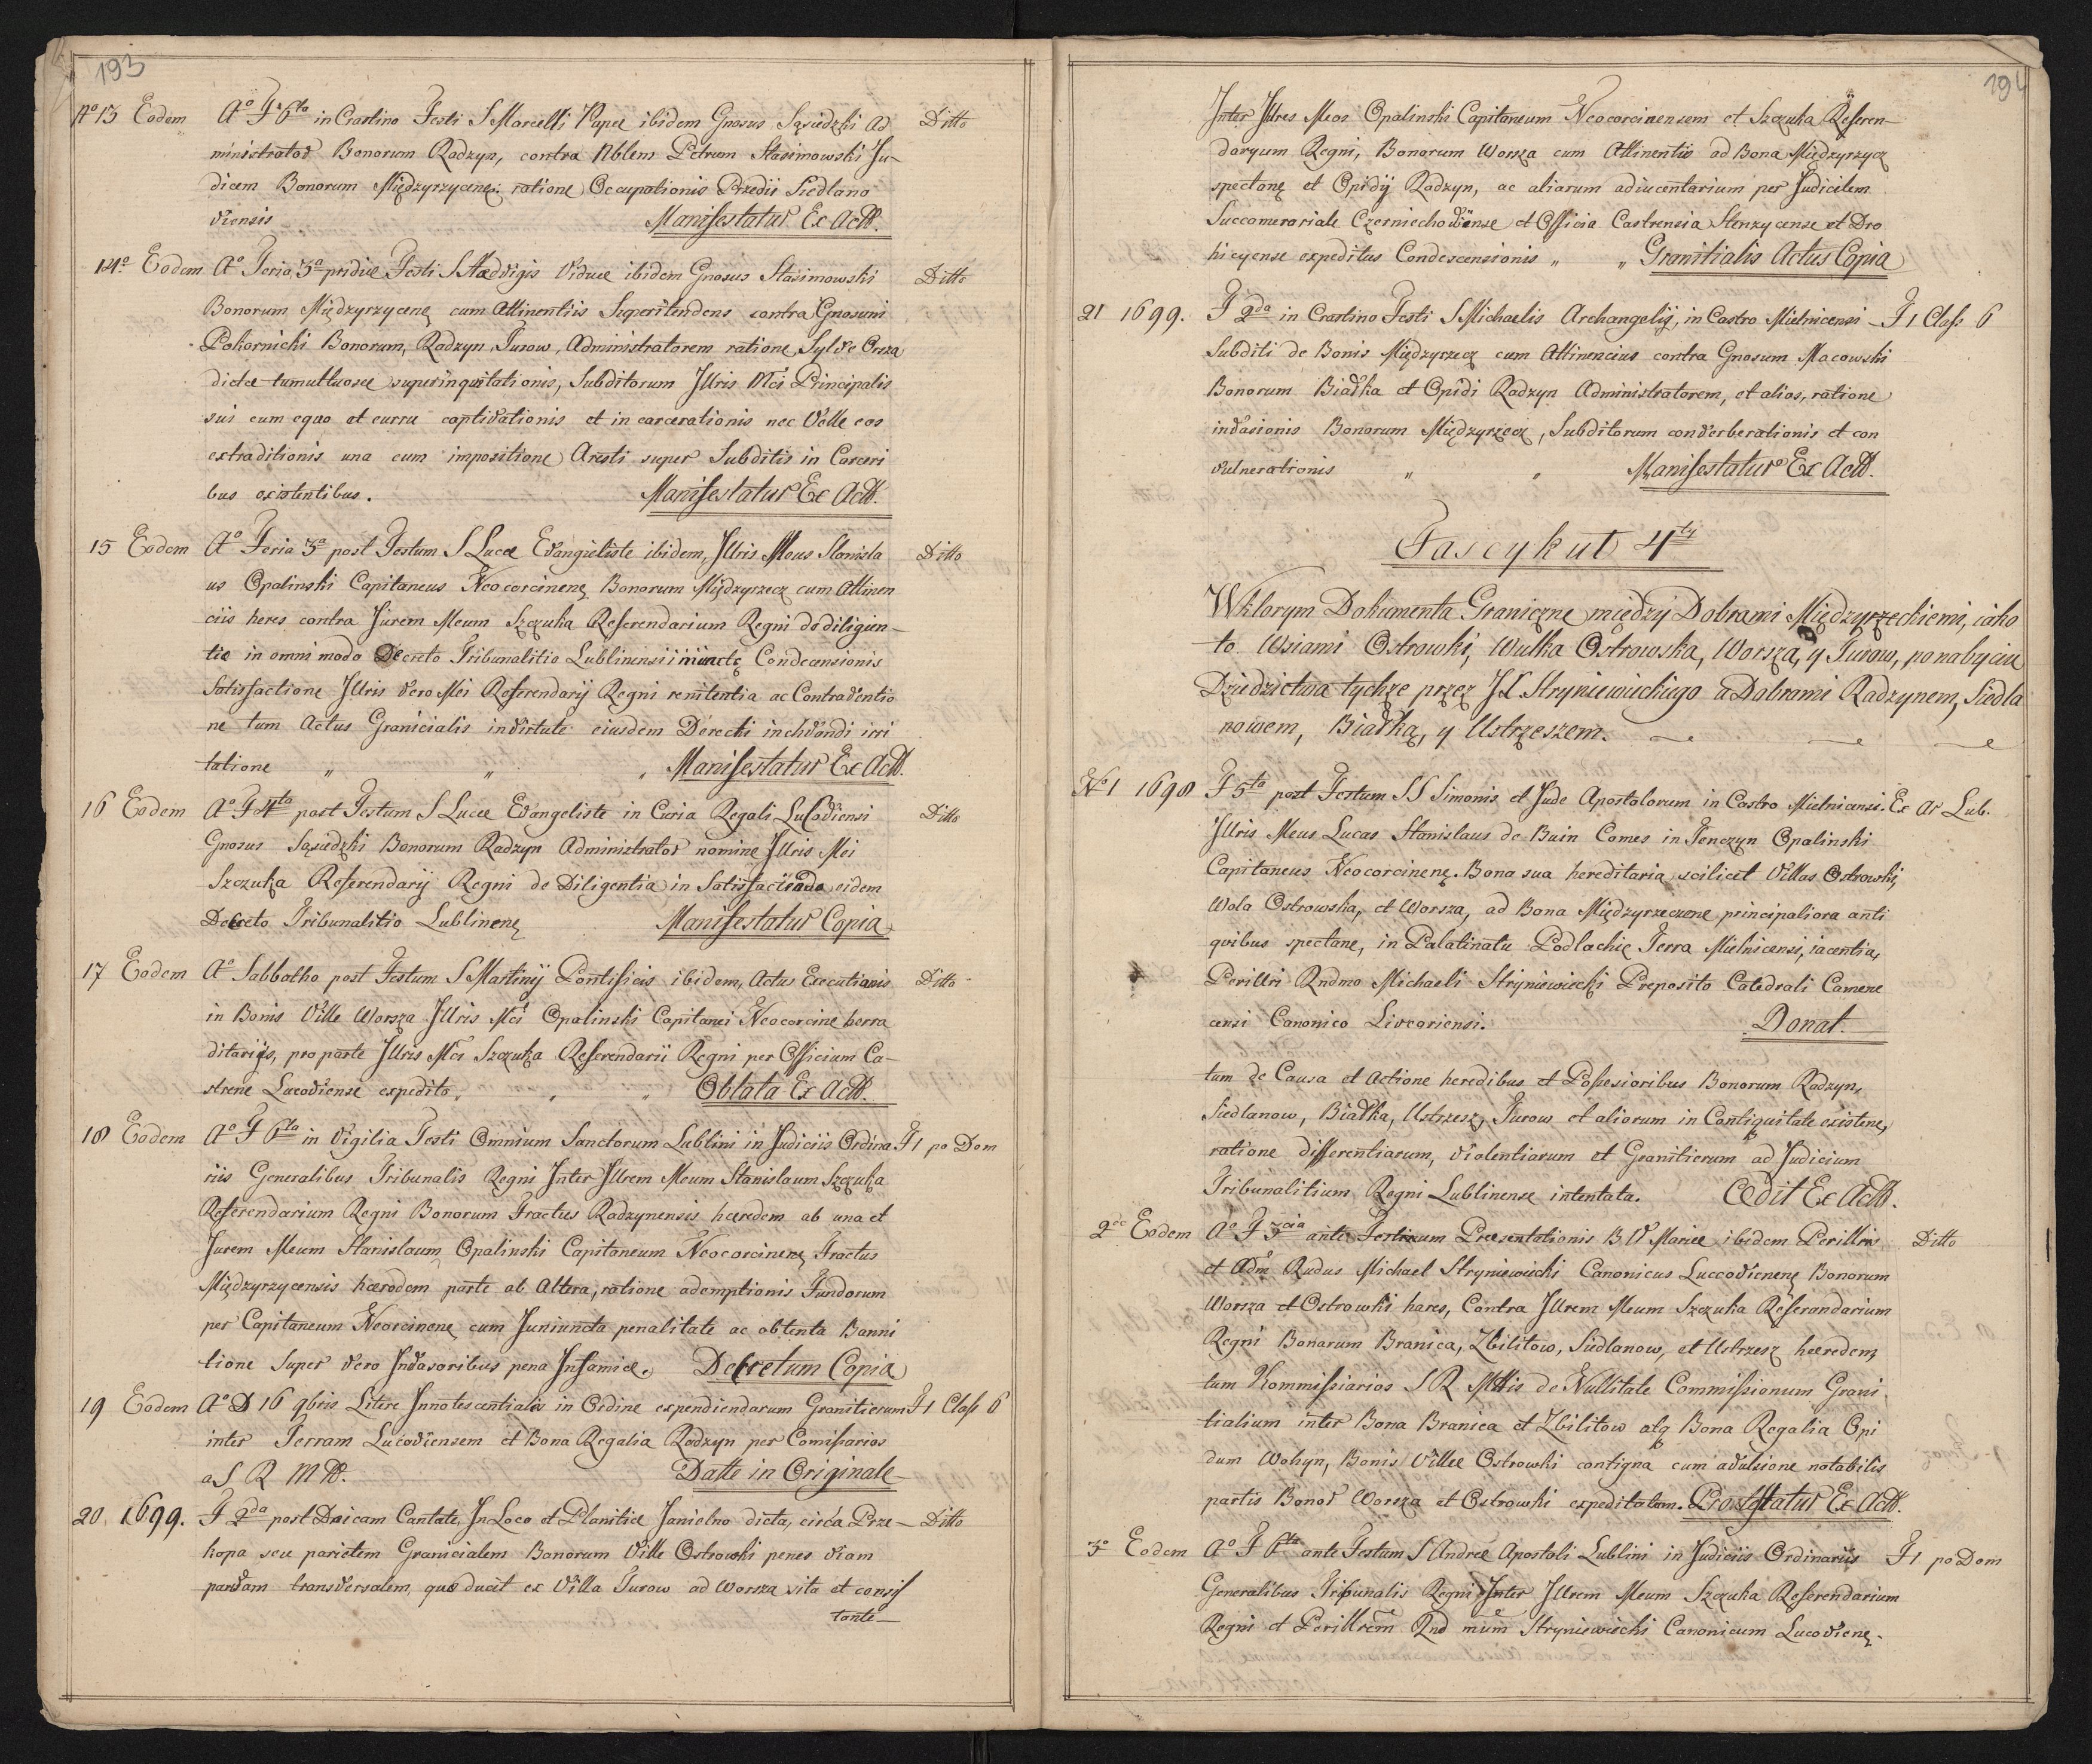 193
No 13 Eodem Ao F 6ta in Crastino Festi S Marcelli Papæ ibidem Gnosus Sąsiedzki Ad Ditto
ministrator Bonorum Radzyn, contra Nblem Petrum Stasimowski Ju-
dicem Bonorum Międzyrzycenę. ratione Occupationis Prædii Siedlano
viensis Manifestatur Ex Actt.
14o Eodem Ao Feria 3a pridie Festi S Hædvigis Viduæ ibidem Gnosus Stasimowski Ditto
Bonorum Międzyrzycenę cum Attinentiis Superitendens contra Gnosum
Pokornicki Bonorum, Radzyn Turow, Administratorem ratione Sylvæ Orsza
dictæ tumultuosæ superinquitationis, Subditorum Jllris Mci Principalis
sui cum equo et curru captivationis et in carcerationis nec Velle eos
extraditionis una cum impositione Aresti super Subditis in Carceri
bus existentibus. Manifestatur Ex Actt.
15 Eodem Ao Feria 3a post Festum S Lucæ Evangieliste ibidem, Jllris Meus Stanisla Ditto
us Opalinski Capitaneus Neocorcinenę Bonorum Międzyrzecz cum Attinen
ciis heres contra Jurem Meum Szczuka Referendarium Regni dodiligien-
tia in omni modo Decreto Tribunalitio Lublinensi iniunctę Condecensionis
Satisfactione Jllris vero Mei Referendarij Regni renitentia ac Contraventio
ne tum Actus Granicialis invirtute eiusdem Derecti inchvandi irri
tatione „ „ „ Manifestatur Ex Actt.
16 Eodem Ao F 4ta post Festum S Lucæ Evangeliste in Curia Regali Lucoviensi Ditto
Gnosus Sąsiedzki Bonorum Radzyn Administrator nomine Jllris Mei
Szczuka Referendarij Regni de Diligentia in Satisfacienda eidem
Decreto Tribunalitio Lublinenę Manifestatur Copia
17 Eodem Ao Sabbatho post Festum S Martinij Pontificis ibidem, Actus Executianis Ditto
in Bonis Ville Worsza Jllris Mci Opalinski Capitanei Neocorcine herra
ditariis, pro parte Jllris Mci Szczuka Referendarii Regni per Officium Ca-
strene Lucoviense expedito. „ „ Oblata Ex Actt.
18 Eodem Ao F 6ta in Vigilia Festi Omnium Sanctorum Lublini in Judiciis Ordina F 1 po Dom
riis Generalibus Tribunalis Regni Jnter Jllrem Meum Stanislaum Szczuka
Referendarium Regni Bonorum Tractus Radzynensis hæredem ab una et
Jurem Meum Stanislaum Opalinski Capitaneum Neocorcinenę Tractus
Międzyrzycensis hærodem parte ab Altera, ratione ademptionis Fundorum
per Capitaneum Neorcinenę cum Juniuncta penalitate ac obtenta Banni
tione Super vero Jnvasoribus pena Jnfamiæ. Decretum Copia
19 Eodem Ao D 16 qbris Literæ Jnnotescentialis in Ordine expendiendarum Granitierum F 1 Class 6
inter Terram Lucoviensem et Bona Regalia Radzyn per Comissarios
a S R M tt. Datte in Originale
20 1699. F 2da post Dnicam Cantate Jn Loco et Planitiæ Janielno dicta, circa Prze- Ditto
kopa seu parietem Granicialem Bonorum Ville Ostrowki penes viam
parvam transversalem, quæ ducit ex Villa Turow ad Worsza sita et consis
tante

194
Jnter Jllres Meos Opalinski Capitaneum Neocorcinensem et Szczuka Referen-
daryum Regni, Bonorum Worsza cum Attinentis ad Bona Międzyrzycz
spectanę et Opidij Radzyn, ac aliarum adiucentarium per Judicilem
Succamerariale Czerniechowiense et Officia Castrensia Stenzycense et Dro
hicyense expeditus Condescensionis „ „ Granitialis Actus Copia
21 1699. F 2da in Crastino Festi S Michaelis Archangelij, in Castro Mielnicensi F 1 Class 6
Subditi de Bonis Międzyrzecz cum Attinencius contra Gnosum Macowski
Bonorum Białka et Opidi Radzyn Administratorem, et alios, ratione
invasionis Bonorum Międzyrzecz, Subditorum converberationis et con
vulnerationis „ „ Manifestatur Ex Actt.
Fascykuł 4ty
Wktorym Dokumenta Graniczne między Dobrami Międzyrzeckiemi, iako
to Wsiami Ostrowki, Wulka Ostrowska, Worsza, y Turow, po nabyciu
Dziedzictwa tychże przez JX Stryniewieckiego a Dobrami Radzynem, Siedla
nowem, Białką, y Ustrzeszem.
No 1 1698 F 5ta post Festum SS Simonis et Jude Apostolorum in Castro Mielnicensi. Ex Ar Lub.
Jllris Meus Lucas Stanislaus de Buin Comes in Tenczyn Opalinski
Capitaneus Neocorcinenę. Bona sua hereditaria scilicet Villas Ostrowki,
Wola Ostrowska, et Worsza, ad Bona Międzyrzeczene principaliora anti
quibus spectane, in Palatinatu Podlachię Terra Mielnicensi, iacentia,
Perillri Rndmo Michaeli Stryniewiecki Preposito Catedrali Camene
censi Canonico Liveoriensi. Donat.
tum de Causa et Actione heredibus et Possesioribus Bonorum Radzyn,
Siedlanow, Białka, Ustrzesz, Turow et aliorum in Contiquitate existene,
ratione differentiarum, violentiarum et Granitierum ad Judicium
Tribunalitium Regni Lublinense intentata. Cedit Ex Actt.
2do Eodem Ao F 3cia ante Festum Præsentationis B V Mariæ ibidem Perillris Ditto
et Adm Rudus Michael Stryniewiecki Canonicus Luccovienenę Bonorum
Worsza et Ostrowki hares, Contra Jllrem Meum Szczuka Referandarium
Regni Bonarum Branica, Zbilitow, Siedlanow, et Ustrzesz hæredem,
tum Kommissiarios S R Mttis de Nullitate Commissionum Grani
tialium inter Bona Branica et Zbilitow atq Bona Regalia Opi
dum Wohyn, Bonis Villæ Ostrowki contigna cum avulsione notabilis
partis Bonor Worsza et Ostrowki expeditatum. Protestatur Ex Actt.
3o Eodem Ao F 6ta ante Festum S Andreæ Apostoli Lublini in Judiciis Ordinariis F 1 po Dom
Generalibus Tribunalis Regni Jnter Jllrem Meum Szczuka Referendarium
Regni et Perillrem Rnd mum Stryniewiecki Canonicum Lucovienę.